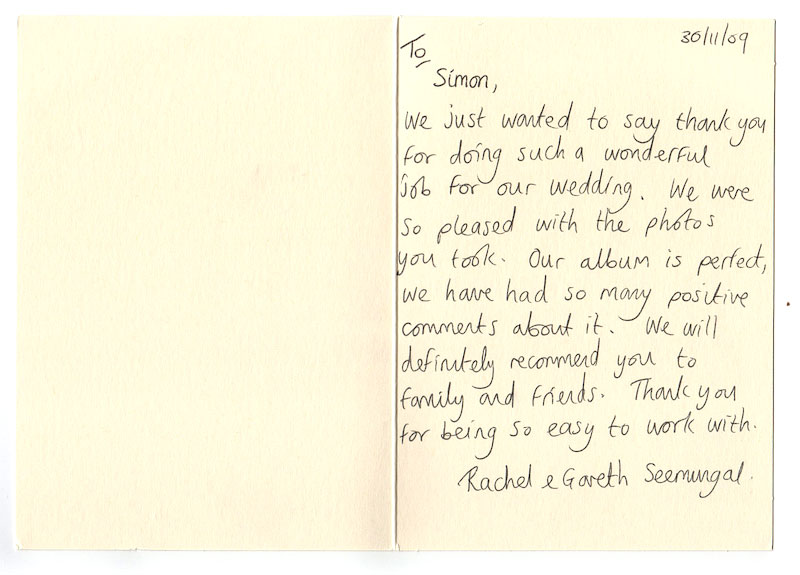 30/11/09
To
Simon,
We just wanted to say thank you
for doing such a wonderful
job for our wedding. We were
so pleased with the photos
you took. Our album is perfect,
we have had so many positive
comments about it. We will
definitely recommend you to
family and friends. Thank you
for being so easy to work with.
Rachel & Gareth Seemungal.